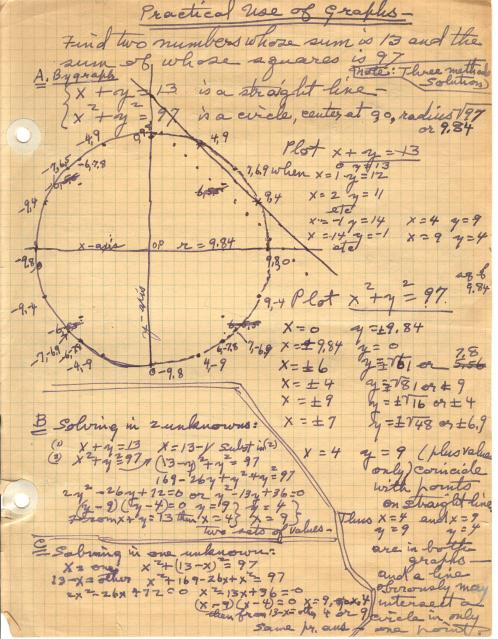 Practical Use of Graphs —
Find two numbers whose sum is 13 and the
sum of whose squares is 97
A. By graph
Note: Three methods
Solution
x + y = 13 is a straight line —
x² + y² = 97 is a circle, center at 0, radius √97
or 9.84
-4,9
4,9
-7,6.9
-6,7.8
7,6.9
-9,4
9,4
x-axis
OP
r = 9.84
-9.8
9.8,0
-9,-4
9,-4
y-axis
-7,-6.9
-6,-7.8
-4,-9
0,-9.8
4,-9
6,-7.8
7,-6.9
Plot x + y = 13
when x = 1 y = 12
x = 2 y = 11
etc
x = -1 y = 14 x = 4 y = 9
x = 14 y = -1 x = 9 y = 4
etc
sq of
9.84
Plot x² + y² = 97
x = 0 y = ±9.84
x = ±9.84 y = 0
x = ±6 y = ±√61 or 7.8
x = ±4 y = ±√81 or ±9
x = ±9 y = ±√16 or ±4
x = ±7 y = ±√48 or ±6.9
x = 4 y = 9 (plus values
only) coincide
with points
on straight line
Thus x = 4 and x = 9
y = 9 y = 4
are in both
graphs —
and a line
obviously may
intersect a
circle in only
one point
B Solving in 2 unknowns:
(1) x + y = 13 x = 13 - y Subst in (2)
(2) x² + y² = 97 (13-y)² + y² = 97
169 - 26y + y² + y² = 97
2y² - 26y + 72 = 0 or y² - 13y + 36 = 0
(y - 9)(y - 4) = 0 y = 9 y = 4
From x + y = 13 then x = 4 x = 9
Two sets of values —
C Solving in one unknown:
x = one x² + (13-x)² = 97
13-x = other x² + 169 - 26x + x² = 97
2x² - 26x + 72 = 0 x² - 13x + 36 = 0
(x - 9)(x - 4) = 0 x = 9, or x = 4
then from 13-x = other 4 or 9
Same pr. ans —